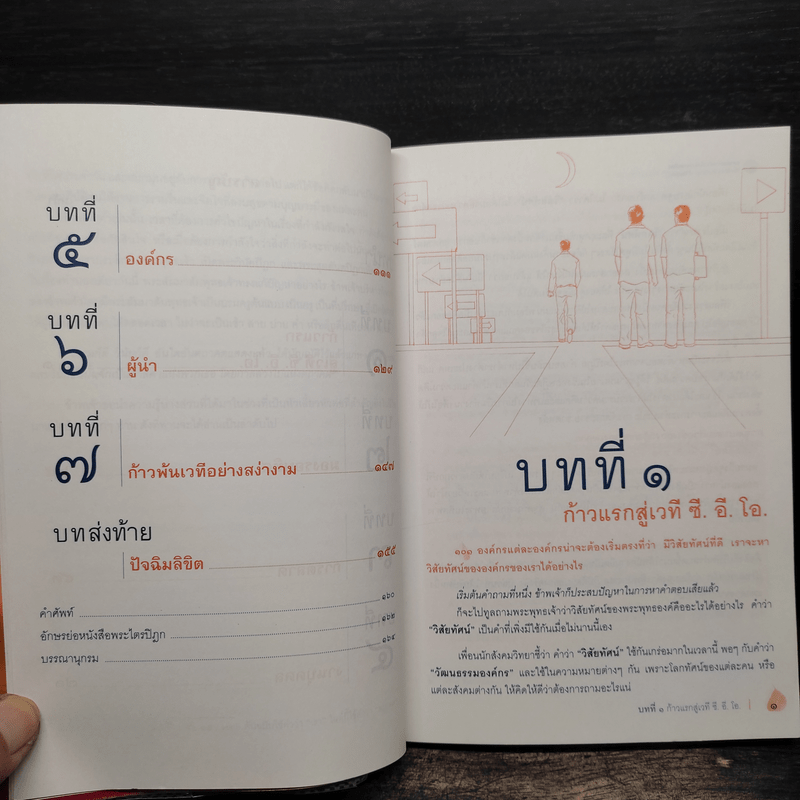 บทที่
๕
องค์กร ๑๑๑
บทที่
๖
ผู้นำ ๑๒๙
บทที่
๗
ก้าวพ้นเวทีอย่างสง่างาม ๑๔๗
บทส่งท้าย
ปัจฉิมลิขิต ๑๕๕
คำศัพท์ ๑๖๐
อักษรย่อหนังสือพระไตรปิฎก ๑๖๒
บรรณานุกรม ๑๖๔
บทที่ ๑
ก้าวแรกสู่เวที ซี. อี. โอ.
๑๐๑ องค์กรแต่ละองค์กรน่าจะต้องเริ่มตรงที่ว่า มีวิสัยทัศน์ที่ดี เราจะหา
วิสัยทัศน์ขององค์กรของเราได้อย่างไร
เริ่มต้นคำถามที่หนึ่ง ข้าพเจ้าก็ประสบปัญหาในการหาคำตอบเสียแล้ว
ก็จะไปทูลถามพระพุทธเจ้าว่าวิสัยทัศน์ของพระพุทธองค์คืออะไรได้อย่างไร คำว่า
“วิสัยทัศน์” เป็นคำที่เพิ่งมีใช้กันเมื่อไม่นานนี้เอง
เพื่อนนักสังคมวิทยาชี้ว่า คำว่า “วิสัยทัศน์” ใช้กันเกร่อมากในเวลานี้ พอๆ กับคำว่า
“วัฒนธรรมองค์กร” และใช้ในความหมายต่างๆ กัน เพราะโลกทัศน์ของแต่ละคน หรือ
แต่ละสังคมต่างกัน ให้คิดให้ดีว่าต้องการถามอะไรแน่
บทที่ ๑ ก้าวแรกสู่เวที ซี. อี. โอ. ๑